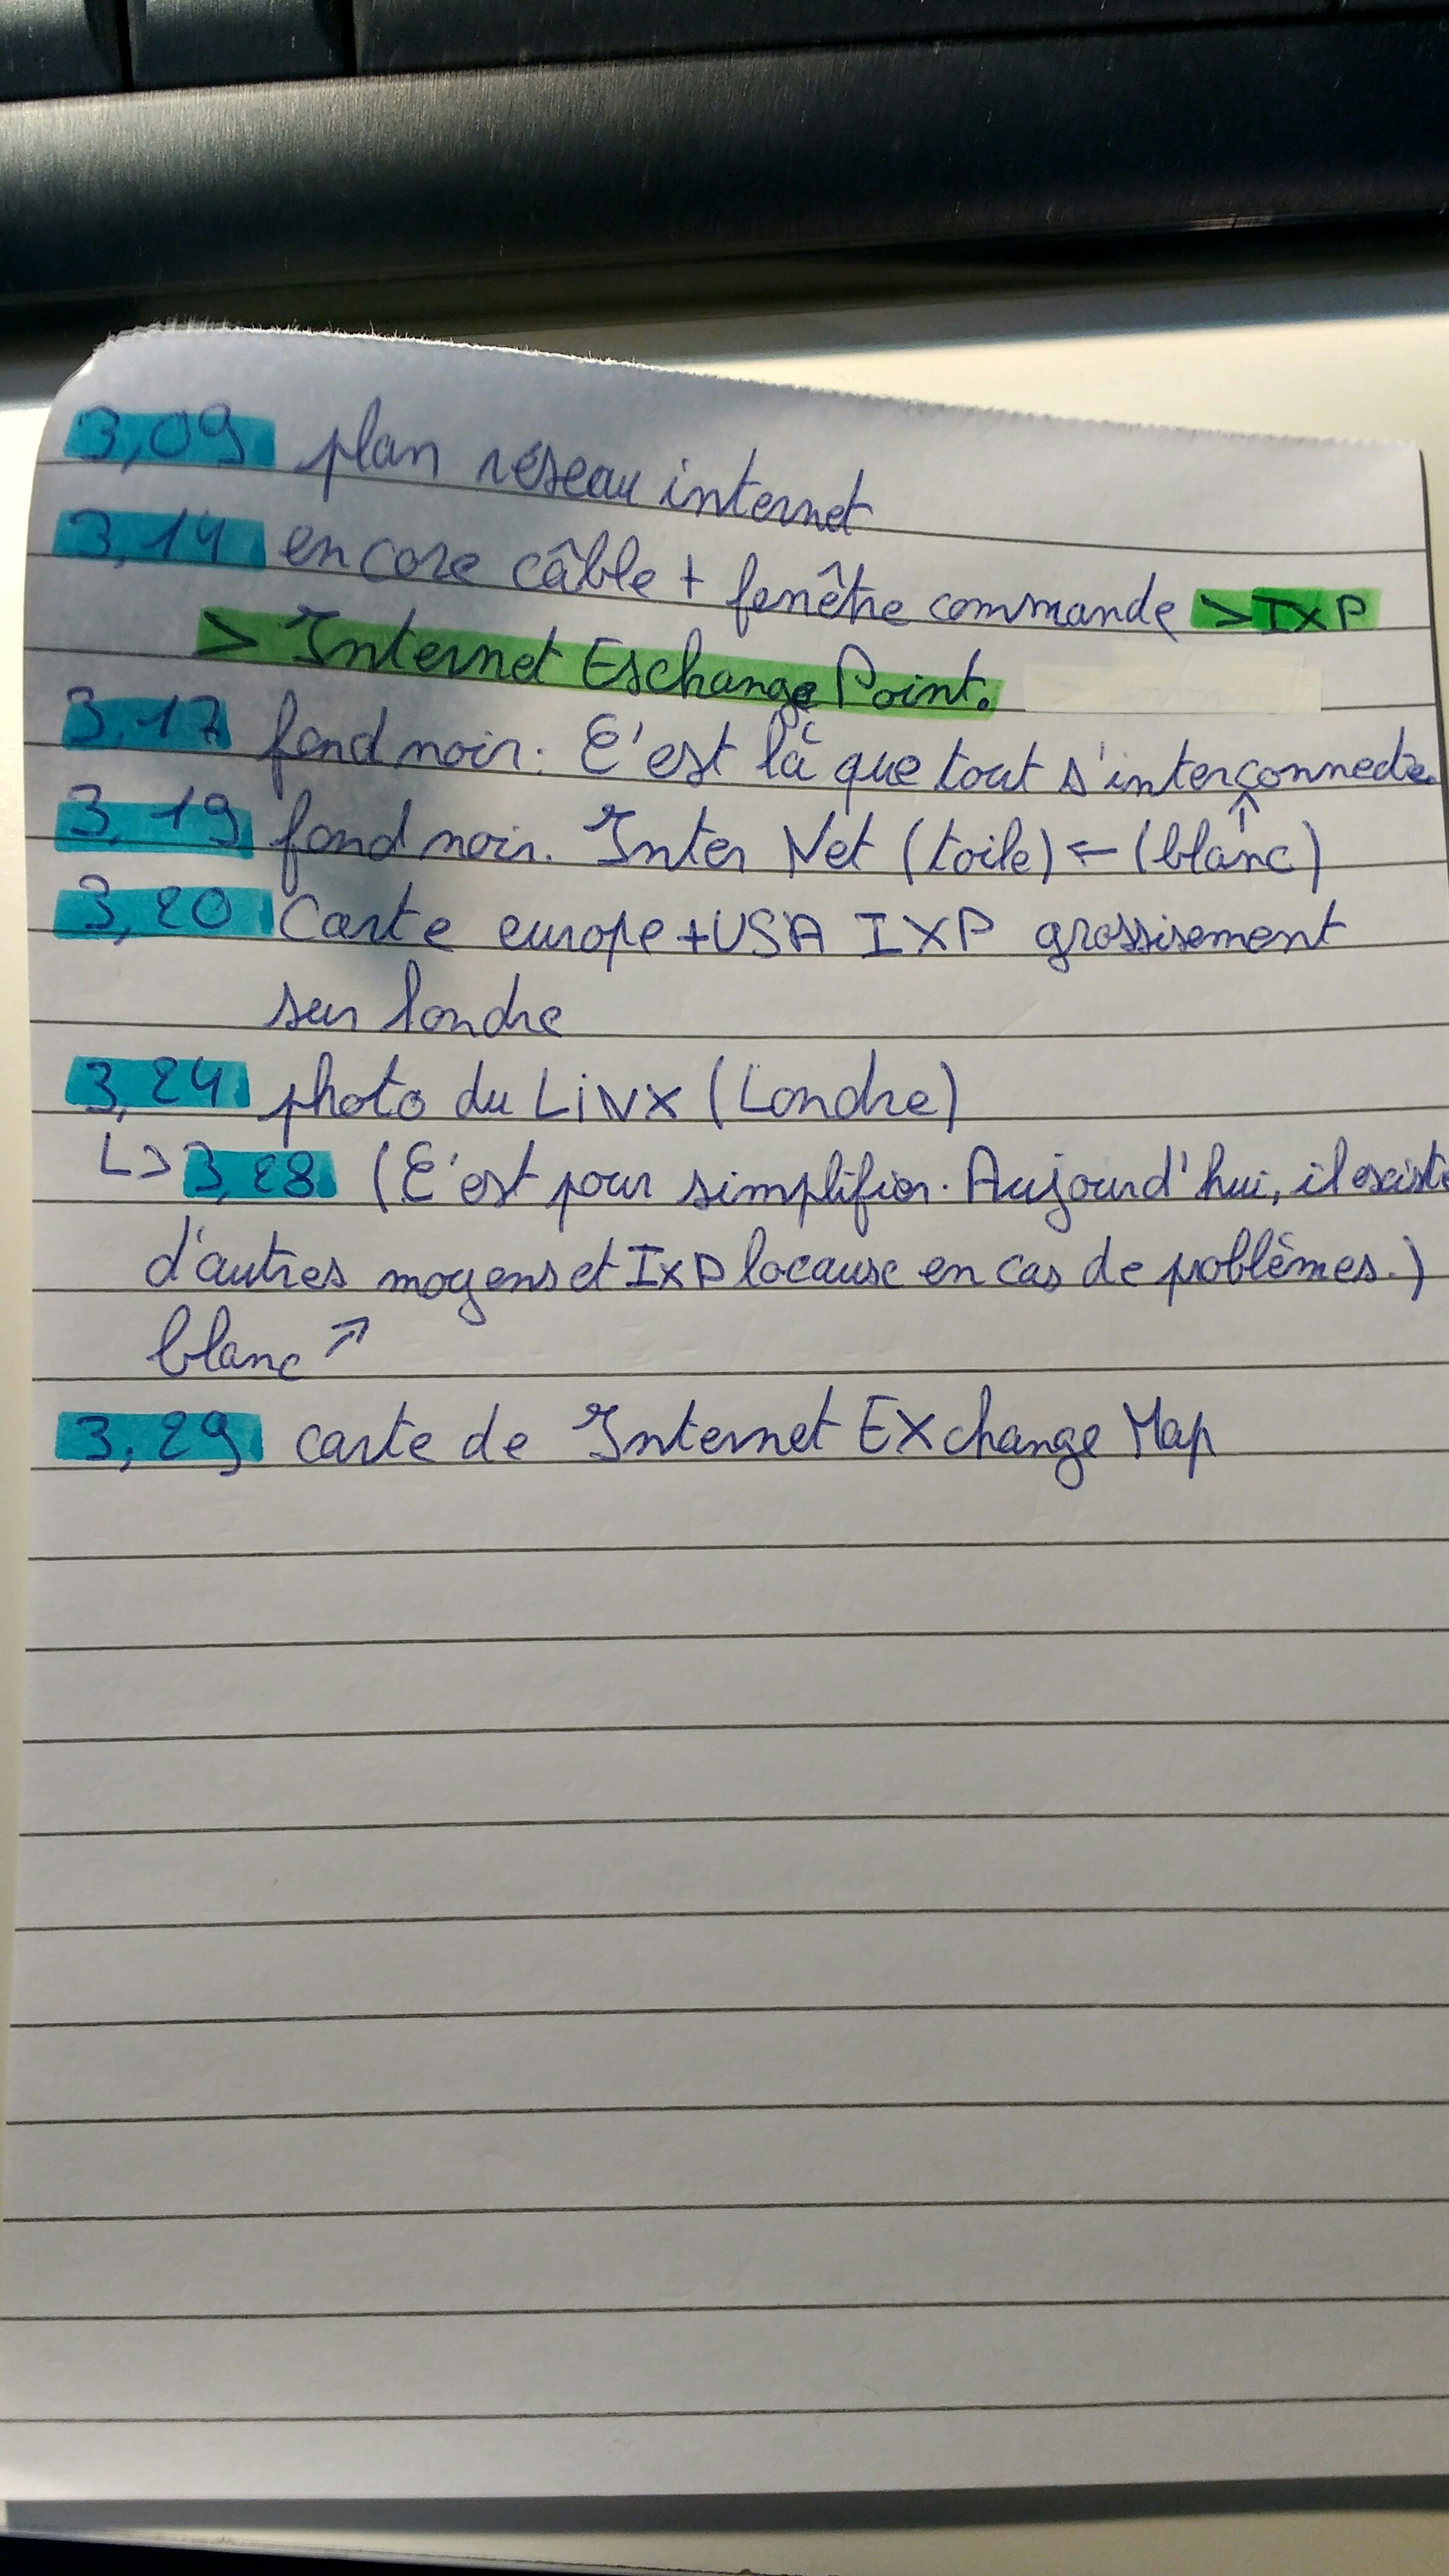 3,09 plan réseau internet
3,14 encore câble + fenêtre commande >IXP
> Internet Exchange Point.
3,17 fond noir: C'est là que tout s'interconnecte.
3,19 fond noir. Inter Net (toile) ← (blanc) ↑
3,20 Carte europe + USA IXP grossisement
sur londre
3,24 photo du LiNX (Londre)
↳ 3,28 (C'est pour simplifier. Aujourd'hui, il existe
d'autres moyens et IXP locaux en cas de problèmes.)
blanc ↗
3,29 carte de Internet EXchange Map